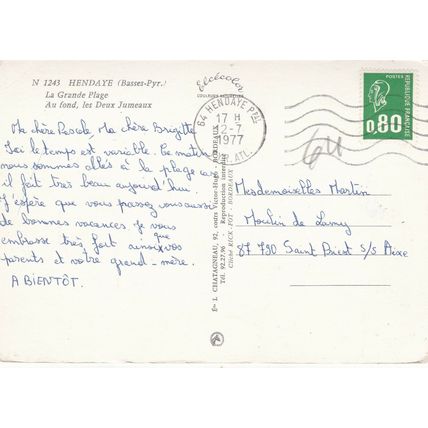 N 1243 HENDAYE (Basses-Pyr.)
La Grande Plage
Au fond, les Deux Jumeaux
Elcécolor
COULEURS NATURELLES
64 HENDAYE Pal
17 H
12-7
1977
PYR. ATL.
POSTES
0,80
REPUBLIQUE FRANÇAISE
64
Ma chère Pascale, Ma chère Brigitte
Ici le temps est variable. Ce matin
nous sommes allés à la plage car
il fait très beau aujourd'hui.
J'espère que vous passez vous aussi
de bonnes vacances. Je vous
embrasse très fort ainsi que vos
parents et votre grand-mère.
A BIENTÔT.
Éts L. CHATAGNEAU, 92, cours Victor-Hugo - BORDEAUX
Tél. 92.27.96 Reproduction interdite
Cliché RICK-FOT - BORDEAUX
Mesdemoiselles Martin
Moulin de Lamy
87 790 Saint Priest s/s Aixe